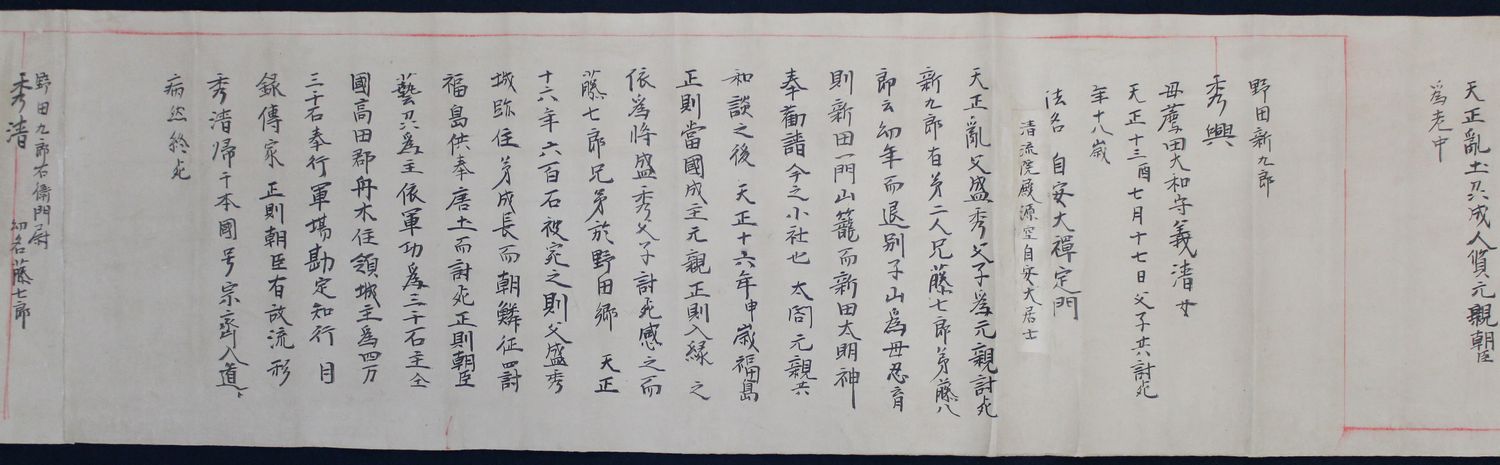 天正乱土州成人質元親朝臣
為老中
野田新九郎
秀興
母薦田大和守義清女
天正十三酉七月十七日父子共討死
年十八歳
法名 自安大禅定門
清流院殿源空自安大居士
天正乱父盛秀父子為元親討死
新九郎有弟二人兄藤七郎弟藤八
郎云幼年而退別子山為母忍育
則新田一門山籠而新田大明神
奉勧請今之小社也 太閤元親共
和談之後 天正十六年申歳福島
正則当国成主元親正則入縁 之
依為将盛秀父子討死感之而
藤七郎兄弟於野田郷 天正
十六年六百石被宛之則父盛秀
城跡住弟成長而朝鮮征四討
福島供奉唐土而討死正則朝臣
藝州為主依軍功為三千石主全
國高田郡舟木住領城主為四万
三千石奉行軍場勘定知行 目
録傳家 正則朝臣有故流形
秀清帰于本國号宗齊入道、
病然終死
野田九郎右衛門尉
秀清 幼名藤七郎